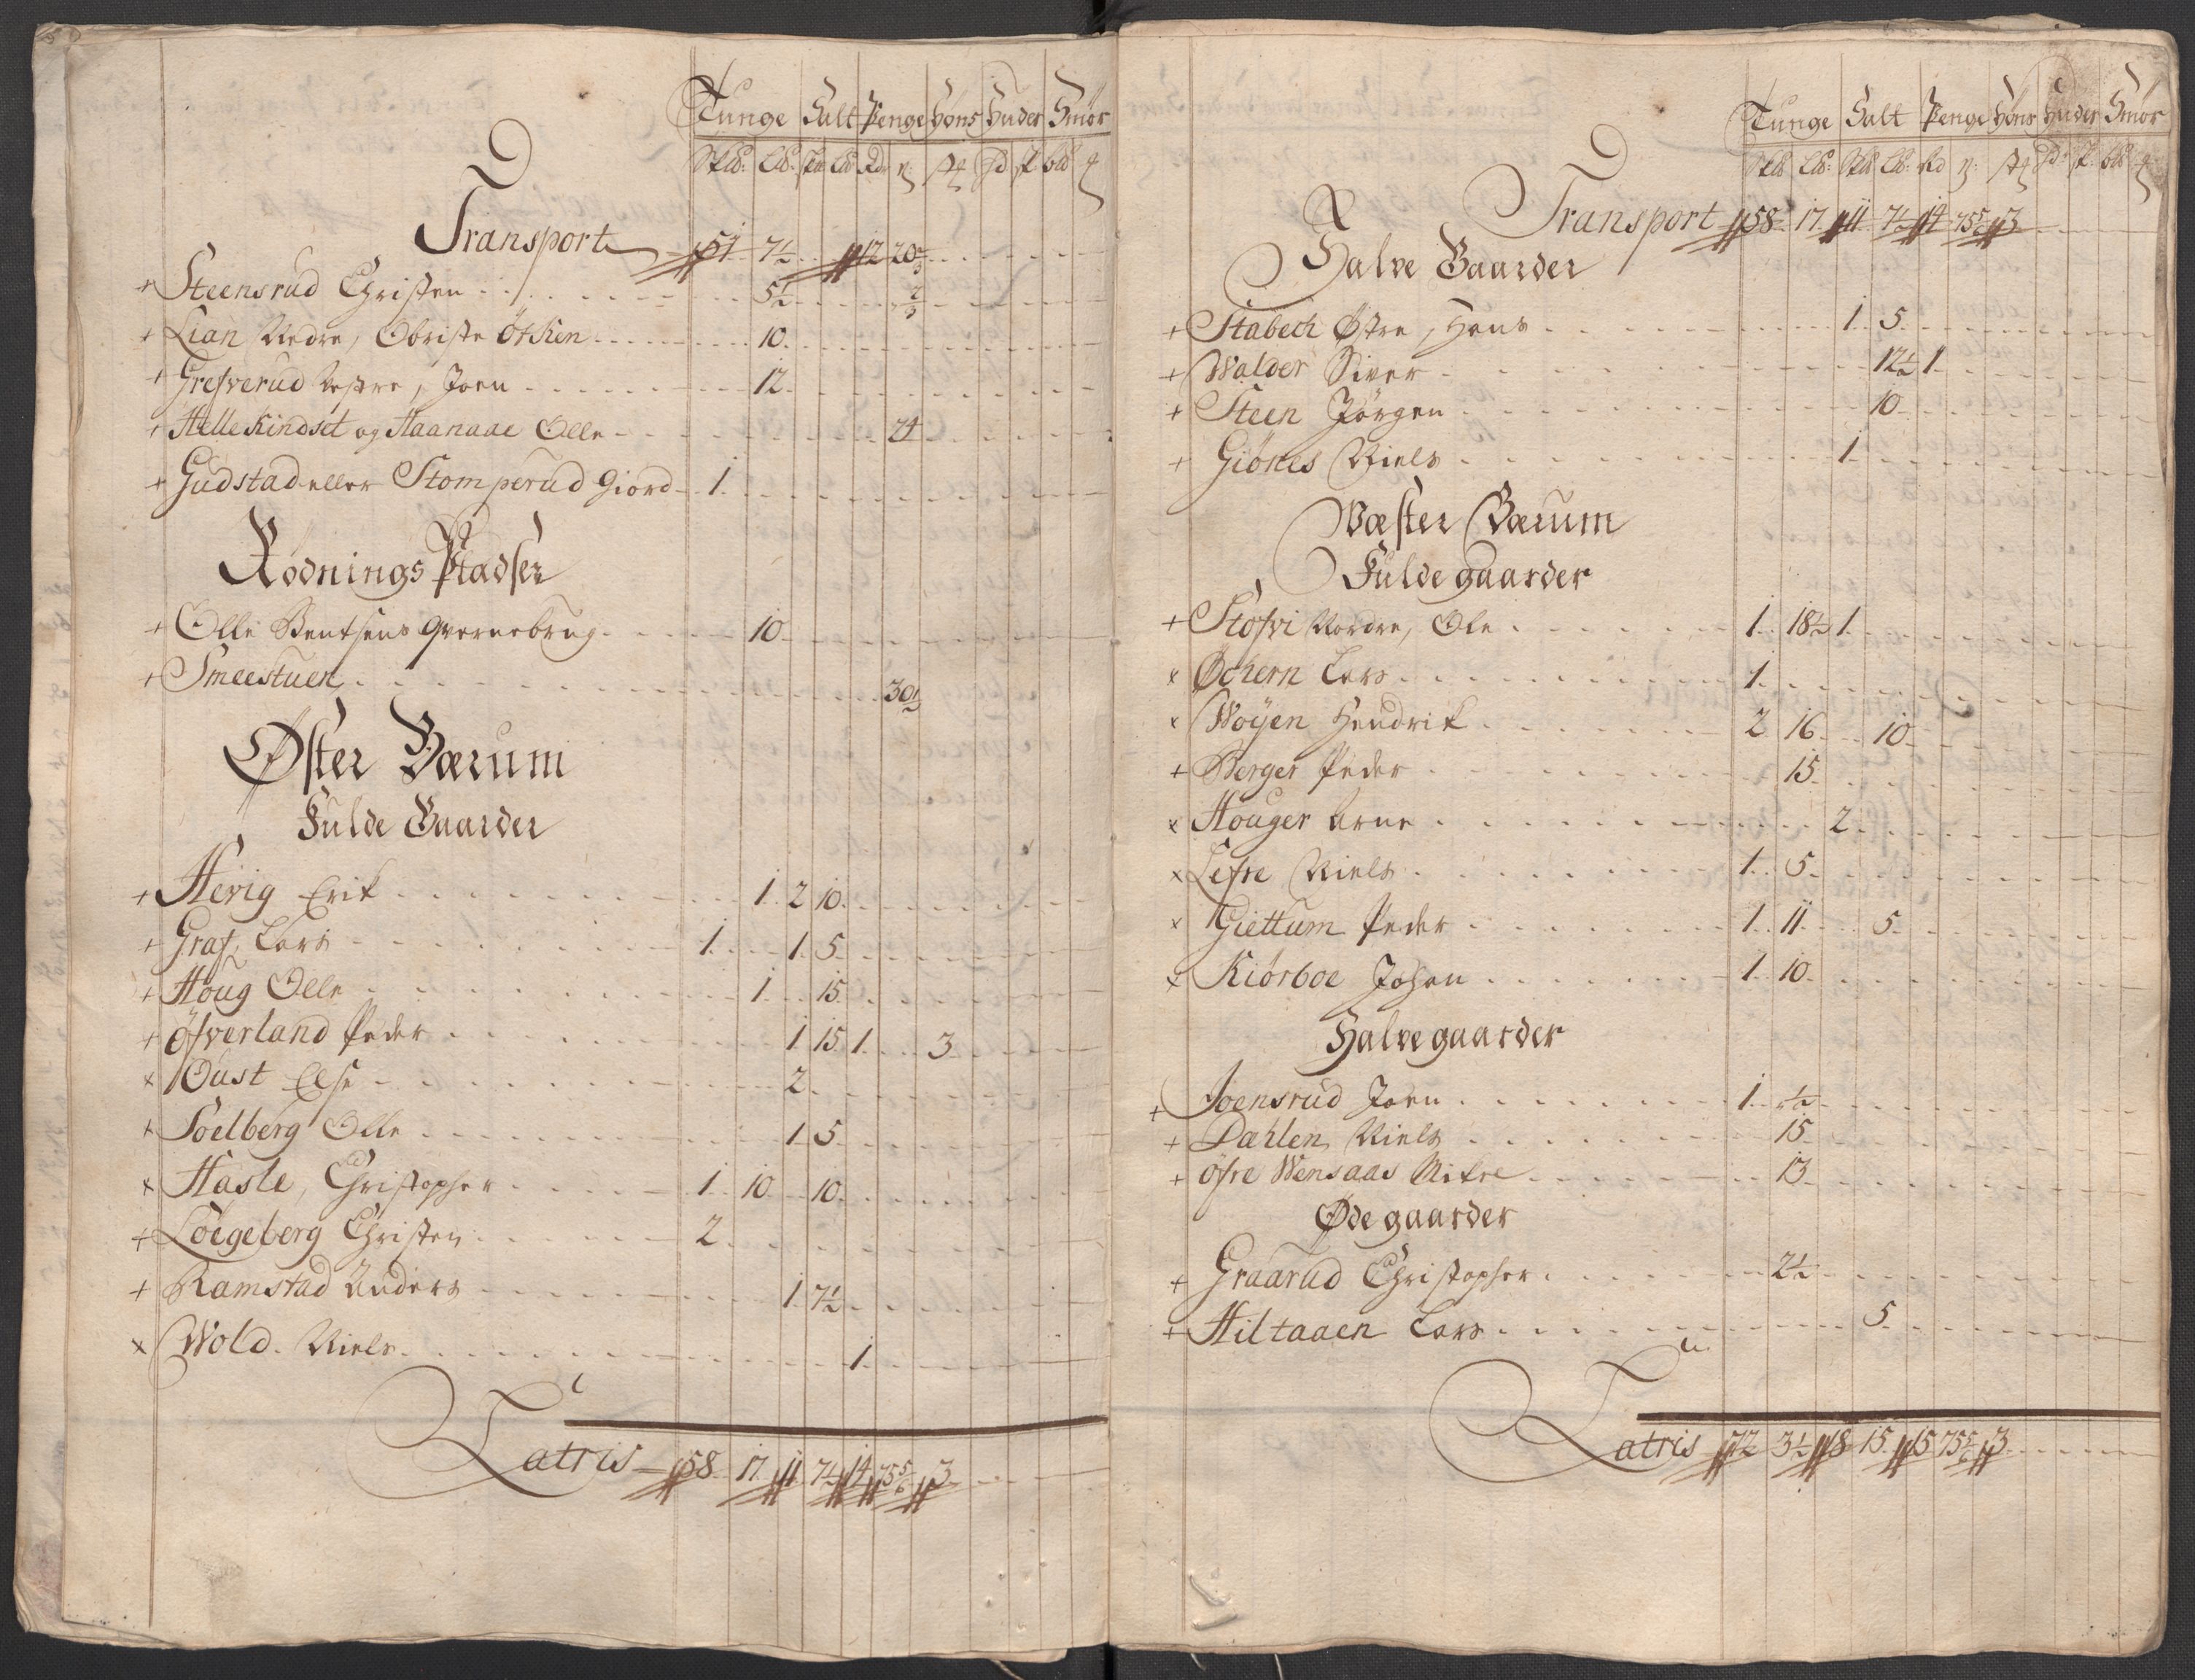 Tunge Salt Penge Høns Huder Smør
Sk℔: L℔: L℔ Rd
Transport 51 7½ 12 20
Steensrud Christen 5½ ⅔
Lian Nedre, Obriste Örken 10
Grefverud Vestre, Joen 12
Hellekindset og Haanaae Olle 24
Gudstad eller Stomperud Giord 1
Rødnings Pladser
Olle Bentsens qvernebrug 10
Smeestuen 30½
Øster Bærum
Fulde Gaarder
Hevig Erik 1 2 10
Graf, Lars 1 1 5
Houg Olle 1 15
Öfverland Peder 1 15 1 3
Oust Else 2
Soelberg Olle 1 5
Hasle, Christopher 1 10 10
Loegeberg Christen 2
Ramstad Anders 1 7½
Wold Niels 1
Latris 58 17 11 7½ 14 75⅚ 3
Tunge Salt Penge Høns Huder Smør
Sk℔ L℔: Sk℔ L℔: Rd
Transport 58 17 11 7½ 14 75⅚ 3
Halve Gaarder
Stabech Østre, Hans 1 5
Walder Siver 12½ 1
Steen Jörgen 10
Giönes Niels 1
Wæster Bærum
Fulde gaarder
Stofvi Nordre, Ole 1 18½ 1
Øchern Lars 1
Woyen Hendrik 2 16 10
Berger Peder 15
Houger Arne 2
Lefre Niels 1 5
Giettum Peder 1 11 5
Kiörboe Johan 1 10
Halve gaarder
Joensrud Joen 1 ½
Dæhlen Niels 15
Öfre Wensaas 13
Øde gaarder
Graarud Christopher 2½
Hiltaaen Lars 5
Latris 72 3½ 18 15 15 75⅚ 3